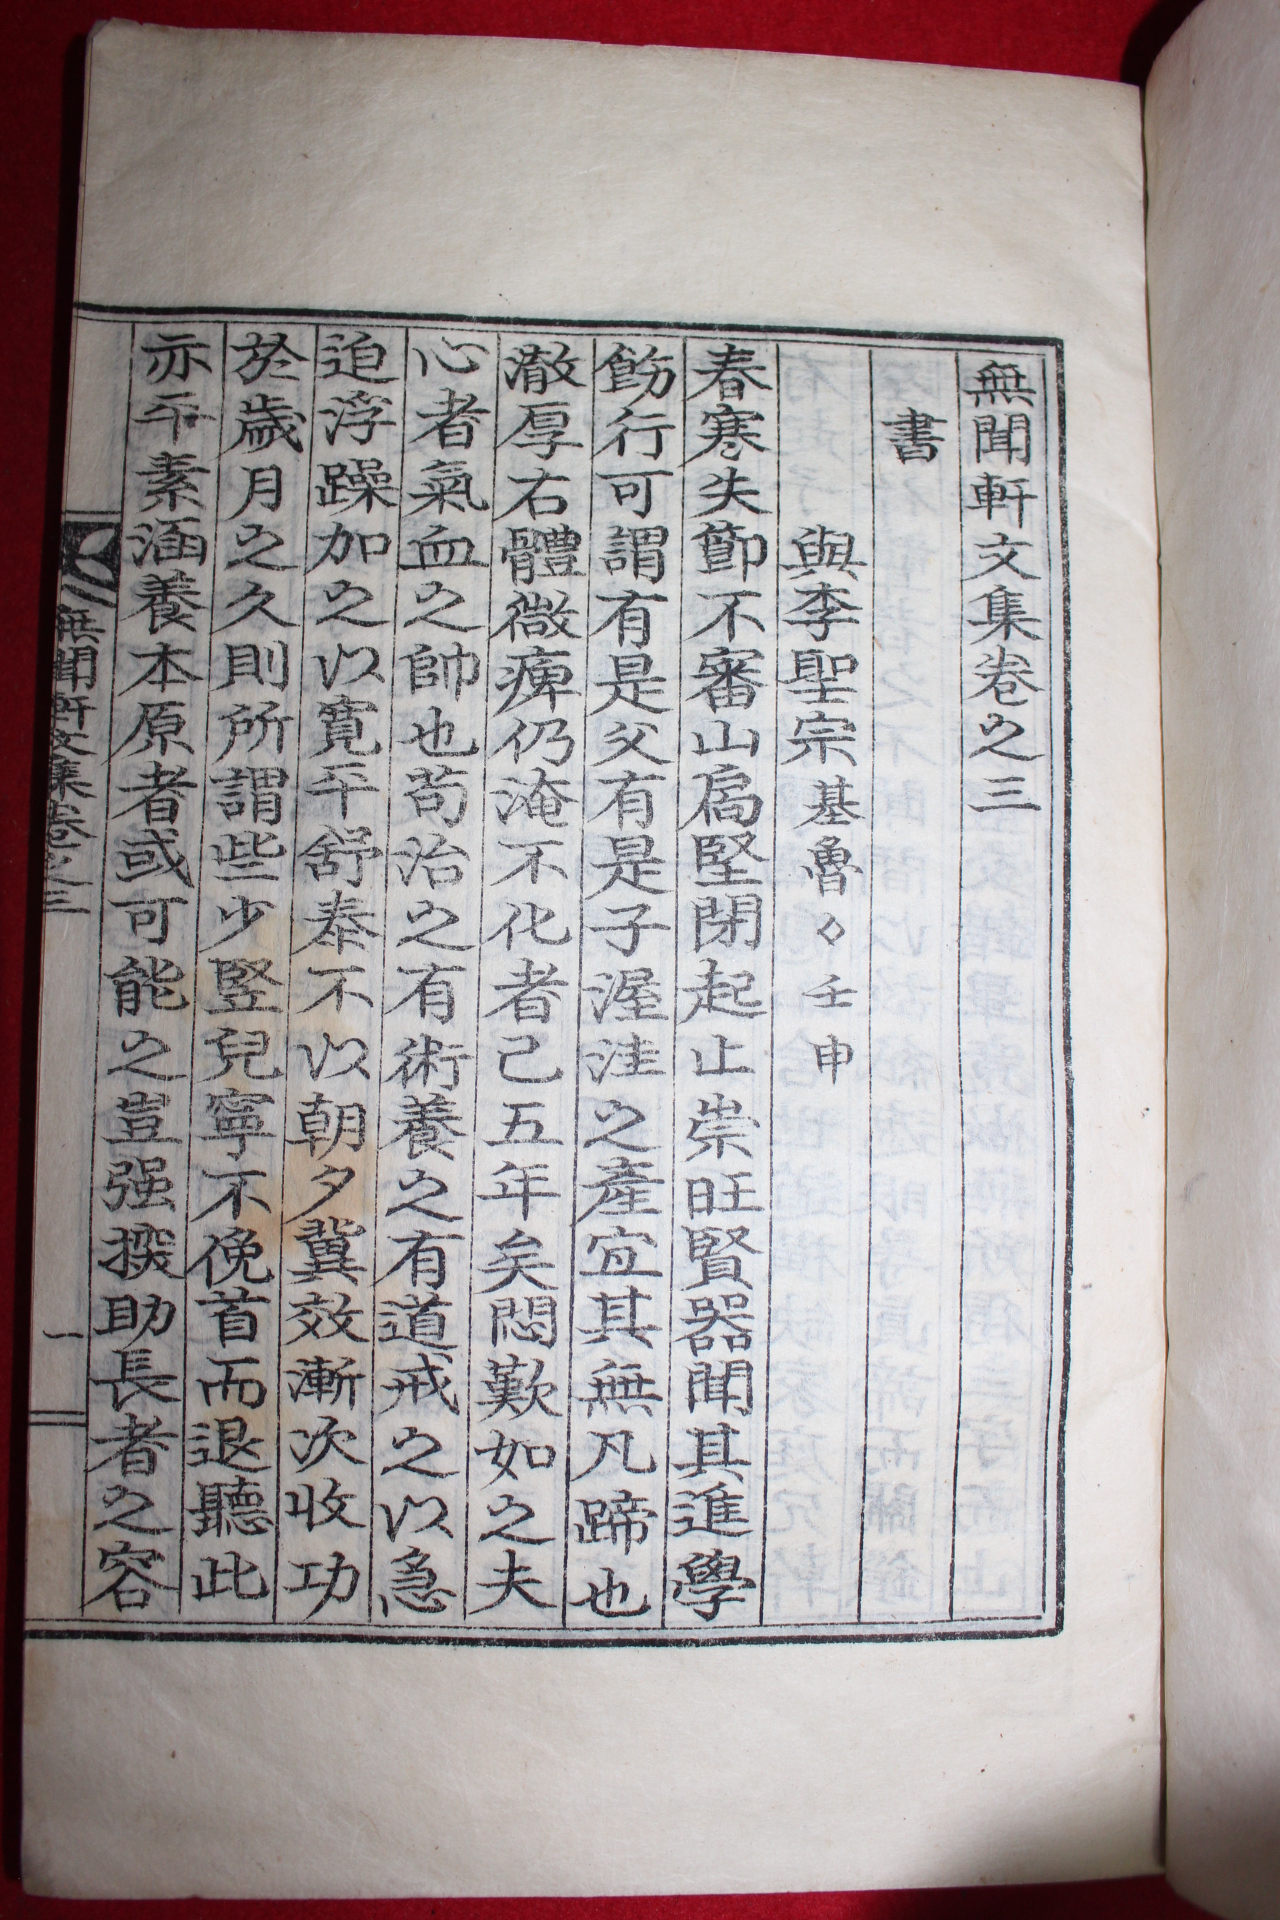 無聞軒文集卷之三
書
與李聖宗基魯〇壬申
春寒失節不審山扃堅閉起止崇旺賢器聞其進學
飭行可謂有是父有是子渥洼之產宜其無凡蹄也
澈厚右體微痺仍淹不化者己五年矣悶歎如之夫
心者氣血之帥也苟治之有術養之有道戒之以急
迫浮躁加之以寬平舒泰不以朝夕冀效漸次收功
於歲月之久則所謂些少竪兒寧不俛首而退聽此
亦平素涵養本原者或可能之豈强揆助長者之容
無聞軒文集卷之三
一